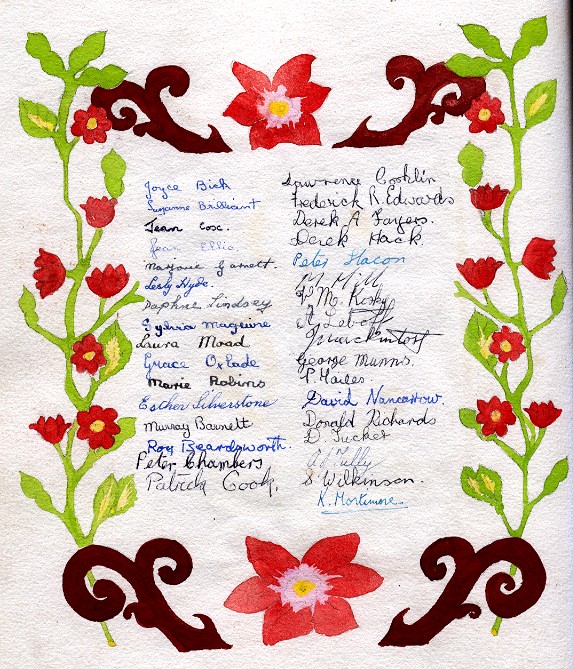 Joyce Bick
Suzanne Brilliant
Jean Cosc.
Jean Ellis.
Marjorie Garnett.
Lesly Hyde.
Daphne Lindsey
Sylvia Maguire
Laura Moad
Grace Oxlade
Marie Robins
Esther Silverstone
Murray Barnett
Roy Beardsworth.
Peter Chambers
Patrick Cook.
Lawrence Cooklin
Frederick R. Edwards
Derek A Fayers.
Derek Hack.
Peter Hacon
M Hill
M. Korky
A Leboff
J Mackintosh
George Munns.
P. Mailes.
David Nancarrow.
Donald Richards
D. Tucker
Tully
S Wilkinson.
K. Mortimore.